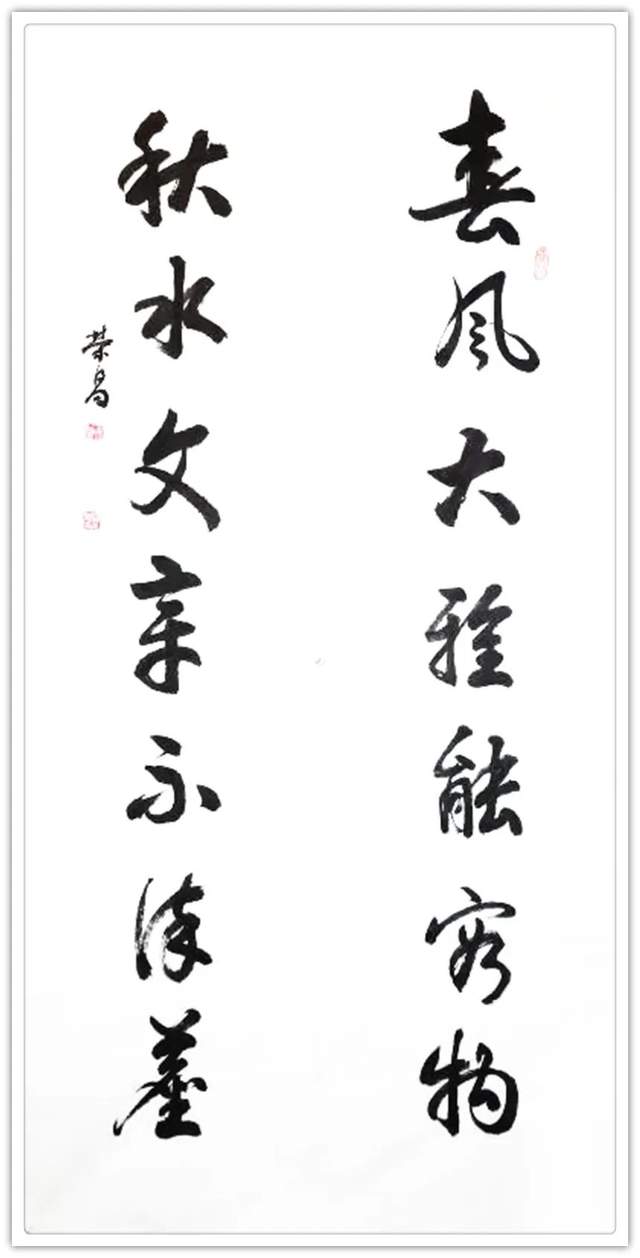 春风大雅能容物
秋水文章不染尘
荣昌